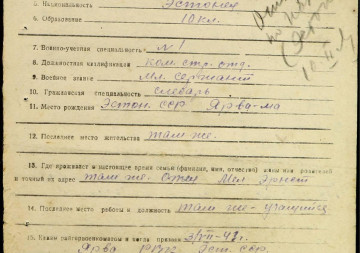 5. Национальность Эстонец
6. Образование 10 кл.
7. Военно-учетная специальность № 1
8. Должностная квалификация ком. стр. отд.
9. Военное звание Мл. сержант
10. Гражданская специальность слесарь
11. Место рождения Эстон. ССР Ярва-ма
12. Последнее место жительства там же.
13. Где проживает в настоящее время семья (фамилия, имя, отчество) жены или родителей
и точный их адрес там же. Отец
14. Последнее место работы и должность там же - учащийся
15. Каким райгорвоенкоматом и когда призван
Ярва РВК Эст. ССР.